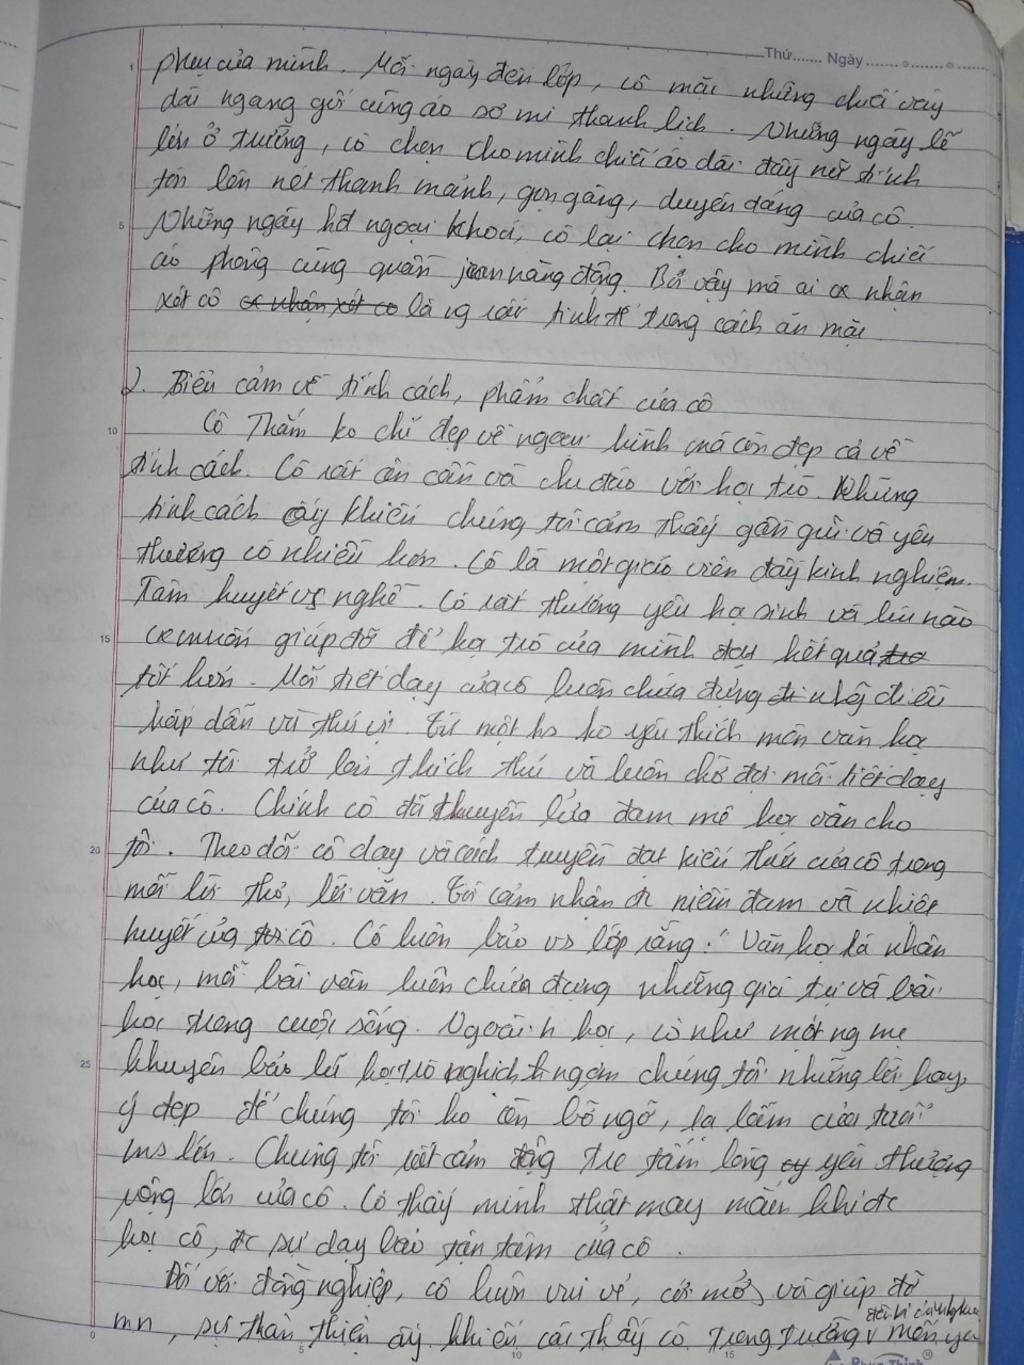 Thứ....... Ngày
phục của mình. Mỗi ngày đến lớp, cô mặc những chiếc váy
dài ngang gối cùng áo sơ mi thanh lịch. Những ngày lễ
lớn ở trường, cô chọn cho mình chiếc áo dài đầy nữ tính
tôn lên nét thanh mảnh, gọn gàng, duyên dáng của cô.
Những ngày hđ ngoại khoá, cô lại chọn cho mình chiếc
áo phông cùng quần jean năng động. Bởi vậy mà ai cx nhận
xét cô cx nhận xét cô là ng rất tinh tế trong cách ăn mặc.
2. Biểu cảm về tính cách, phẩm chất của cô
Cô Thắm ko chỉ đẹp về ngoại hình mà còn đẹp cả về
tính cách. Cô rất ân cần và chu đáo với học trò. Những
tính cách ấy khiến chúng tôi cảm thấy gần gũi và yêu
thương cô nhiều hơn. Cô là một giáo viên đầy kinh nghiệm.
Tâm huyết vs nghề. Cô rất thương yêu họ sinh và lúc nào
cx muốn giúp đỡ để họ trò của mình đạt kết quả
tốt hơn. Mỗi tiết dạy của cô luôn chứa đựng nhg điều
hấp dẫn và thú vị. Từ một hs ko yêu thích môn văn học
như tôi trở lên thích thú và luôn chờ đợi mỗi tiết dạy
của cô. Chính cô đã truyền lửa đam mê học văn cho
tôi. Theo dõi cô dạy và cách truyền đạt kiến thức của cô trong
mỗi lời thơ, lời văn. Tôi cảm nhận đc niềm đam và nhiệt
huyết của cô. Cô luôn bảo vs lớp rằng: "Văn học là nhân
học, mỗi bài văn luôn chứa đựng những giá trị và bài
học trong cuộc sống. Ngoài h học, cô như một ng mẹ
khuyên bảo lũ học trò nghịch ngợm chúng tôi những lời hay,
ý đẹp để chúng tôi ko còn bỡ ngỡ, lạ lẫm của tuổi
ms lớn. Chúng tôi rất cảm động trc tấm lòng yêu thương
rộng lớn của cô. Có thấy mình thật may mắn khi đc
học cô, đc sự dạy bảo tận tâm của cô.
Đối với đồng nghiệp, cô luôn vui vẻ, cởi mở và giúp đỡ
mn, sự thân thiện ấy khiến các thầy cô trong trường